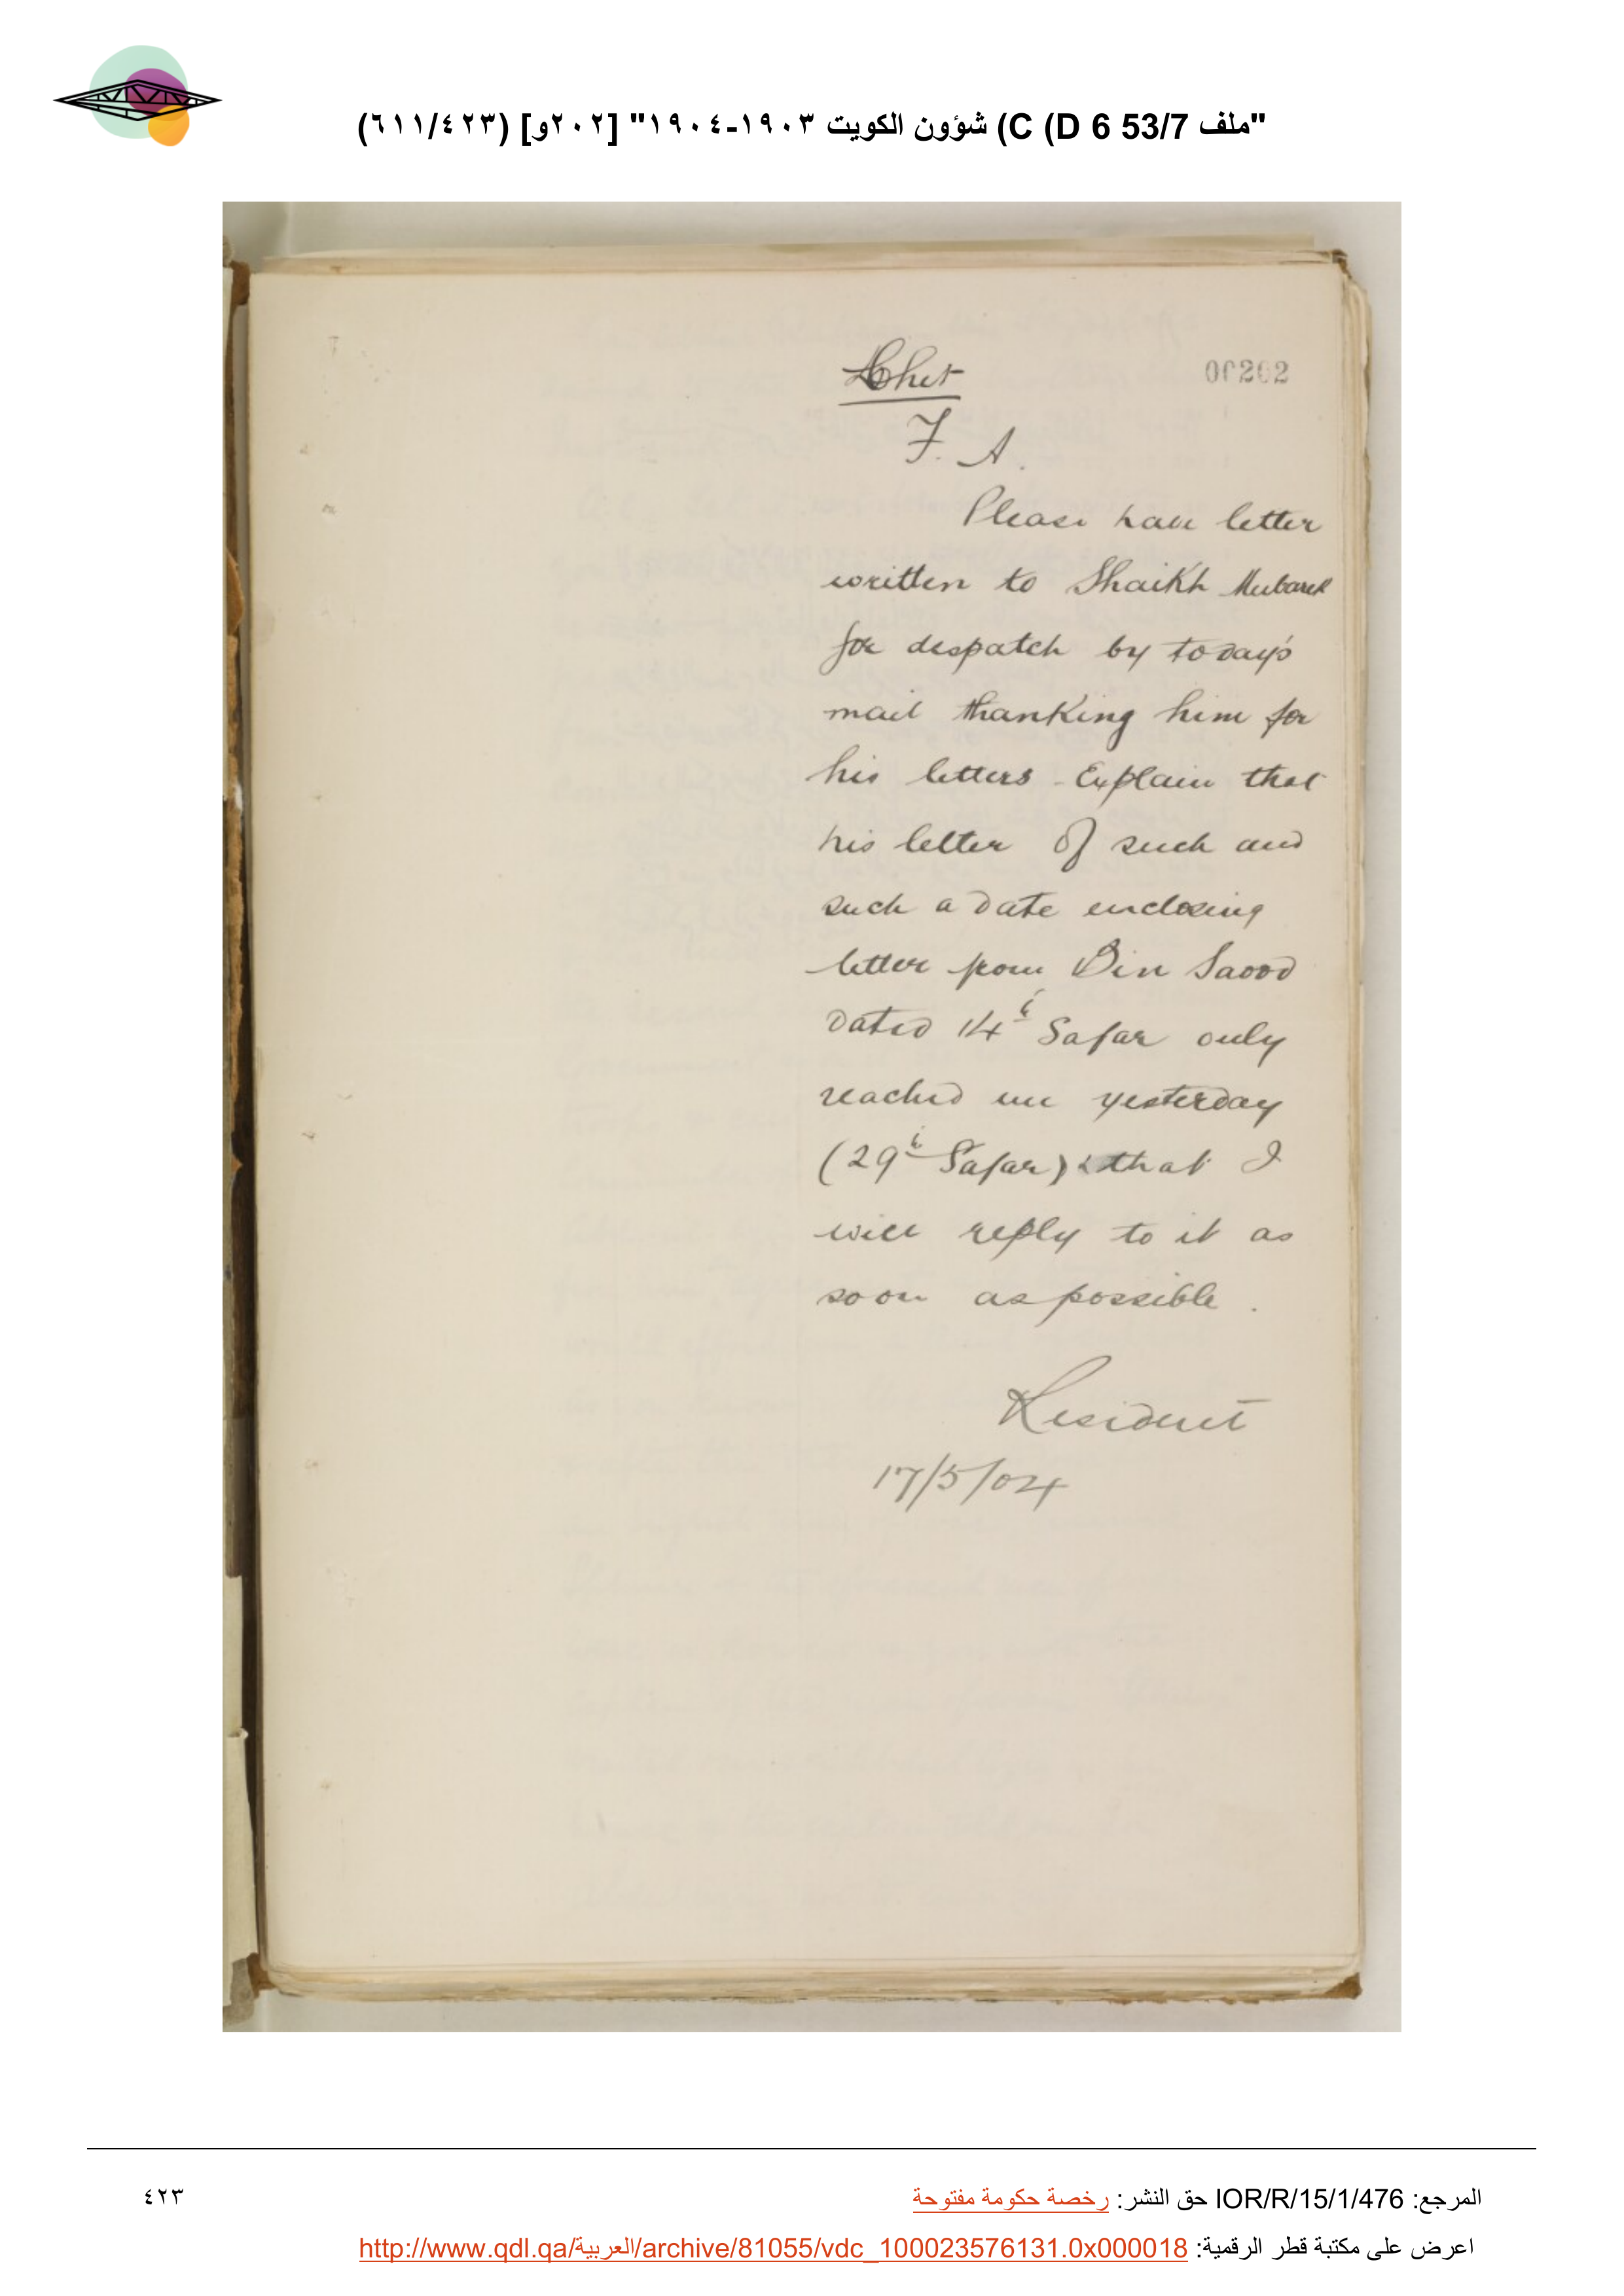 "ملف 53/7 C (D 6) شؤون الكويت ١٩٠٣-١٩٠٤" [٢٠٢و] (٦١١/٤٢٣)
00202
Chit
F. A.
Please have letter
written to Shaikh Mubarek
for despatch by today's
mail thanking him for
his letters - Explain that
his letter of such and
such a date enclosing
letter from Bin Saood
dated 14th Safar only
reached me yesterday
(29th Safar) & that I
will reply to it as
soon as possible.
Resident
17/5/04
المرجع: IOR/R/15/1/476 حق النشر: رخصة حكومة مفتوحة
٤٢٣
اعرض على مكتبة قطر الرقمية: http://www.qdl.qa/العربية/archive/81055/vdc_100023576131.0x000018